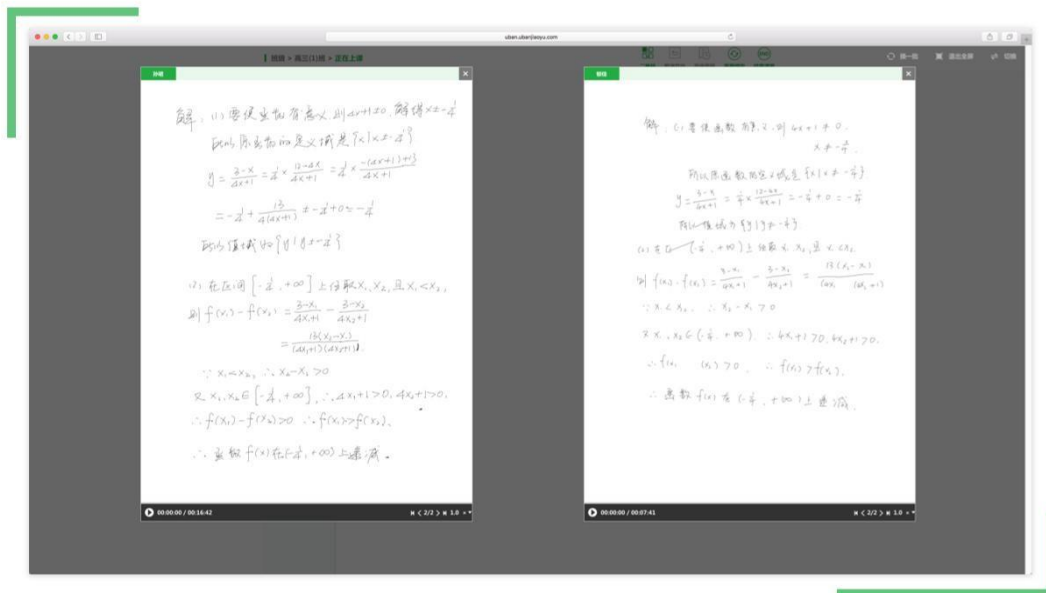 uban.ubanjiaoyu.com
班级 > 高三(1)班 > 正在上课
换一批
退出全屏
切换
解:(1)要使函数有意义,则4x+1≠0,解得x≠-1/4
所以原函数的定义域是{x|x≠-1/4}
y=(3-x)/(4x+1)=1/4×(12-4x)/(4x+1)=1/4×(-(4x+1)+13)/(4x+1)
=-1/4+13/(4(4x+1))≠-1/4+0=-1/4
所以值域为{y|y≠-1/4}
(2)在区间[-1/4,+∞]上任取x₁,x₂,且x₁<x₂,
则f(x₁)-f(x₂)=(3-x₁)/(4x₁+1)-(3-x₂)/(4x₂+1)
=13(x₂-x₁)/((4x₁+1)(4x₂+1)).
∵x₁<x₂,∴x₂-x₁>0
又x₁,x₂∈[-1/4,+∞],∴4x₁+1>0,4x₂+1>0,
∴f(x₁)-f(x₂)>0 ∴f(x₁)>f(x₂),
∴函数f(x)在(-1/4,+∞)上递减.
00:00:00 / 00:16:42
2/2
1.0
解:(1)要使函数有意义,则4x+1≠0.
x≠-1/4.
所以原函数的定义域是{x|x≠-1/4}
y=(3-x)/(4x+1)=1/4×(12-4x)/(4x+1)=-1/4+0=-1/4
所以值域为{y|y≠-1/4}
(2)在区 (-1/4,+∞)上任取x₁ x₂,且x₁<x₂.
则f(x₁)-f(x₂)=(3-x₁)/(4x₁+1)-(3-x₂)/(4x₂+1)=13(x₂-x₁)/(4x₁ 4x₂+1)
∵x₁<x₂,∴x₂-x₁>0
又x₁,x₂∈(-1/4,+∞) ∴4x₁+1>0,4x₂+1>0.
∴f(x₁ (x₂)>0,∴f(x₁)>f(x₂).
∴函数f(x)在(-1/4,+∞)上递减.
00:00:00 / 00:07:41
2/2
1.0